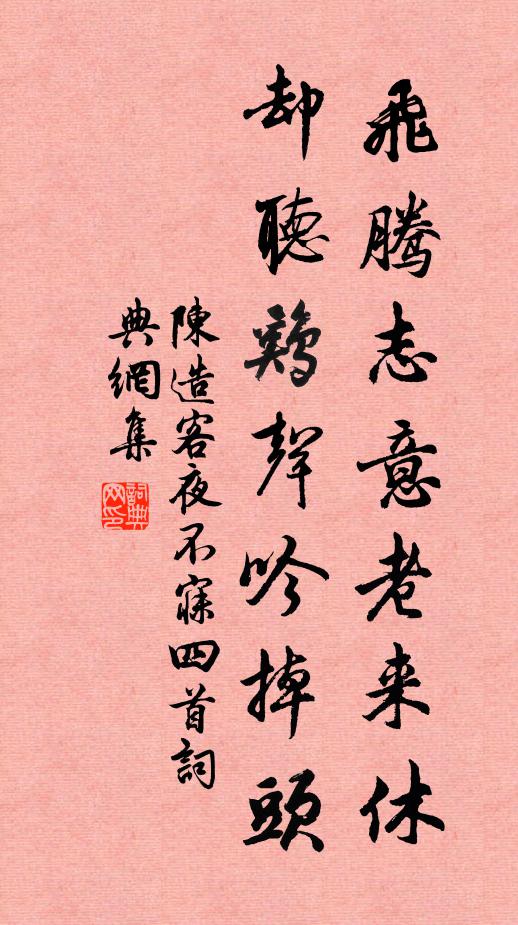 飛騰志意老来休
却聽鷄聲吟掉頭
陳造客夜不寐四首詞
典網集
詞典网印